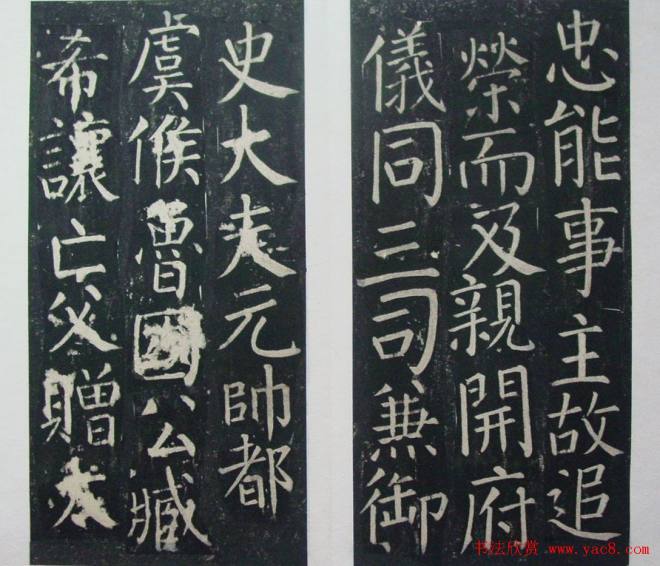 忠能事主故追
榮而及親開府
儀同三司兼御
史大夫元帥都
虞候魯國公臧
希讓亡父贈太
书法欣赏 www.yac8.com